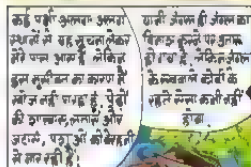 कई पक्षी अलग-अलग
स्थानों से यह सूचना लेकर
मेरे पास आए हैं लेकिन
इस मुसीबत का कारण है
खोज नहीं पा रहा हूं, पेड़ों
की शाखाएं, लताएं और
जटाएं, पशुओं की बेरहमी
से मार रही हैं।
यानी जंगल ही जंगल का
विनाश करने पर
हो गया है लेकिन जंगल
के रखवाले कोबी के
रहते ऐसा कभी नहीं
होगा